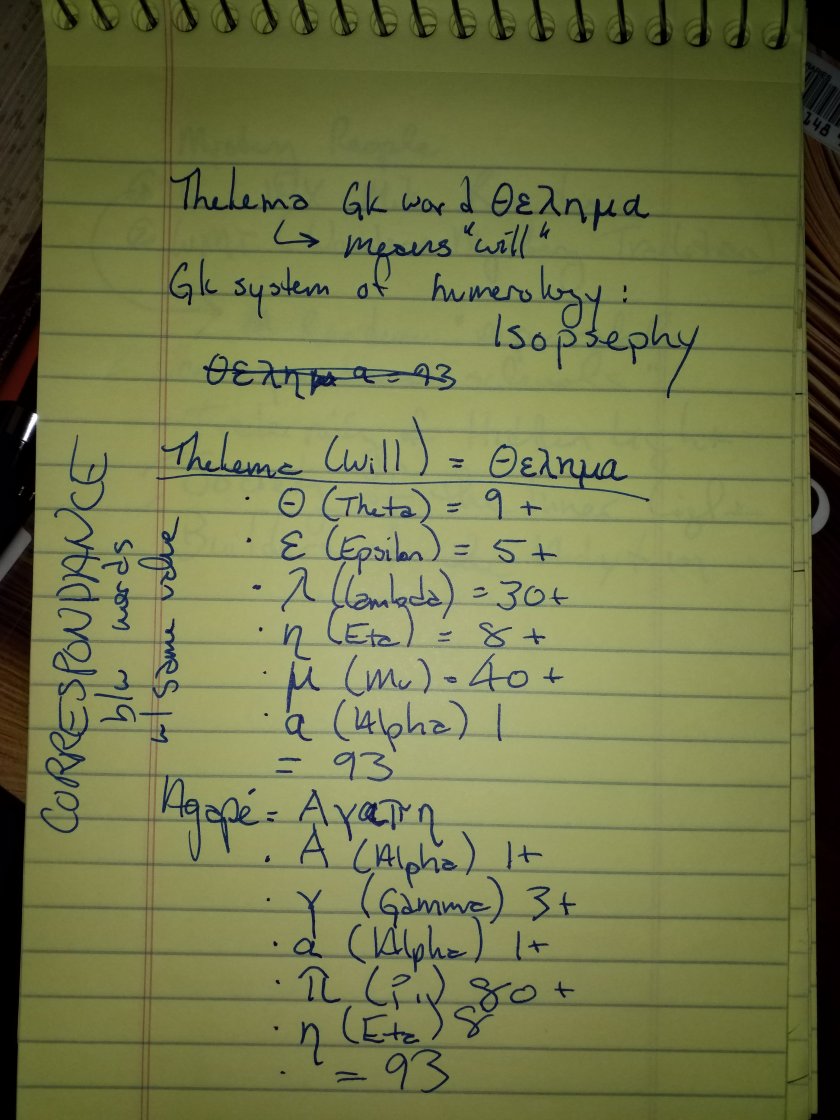 Thelema Gk word Θελημα
↳ means "will"
Gk system of numerology:
Isopsephy
Θελημα = 93
Thelema (Will) = Θελημα
· Θ (Theta) = 9 +
· ε (Epsilon) = 5 +
· λ (Lambda) = 30 +
· η (Eta) = 8 +
· μ (Mu) = 40 +
· α (Alpha) 1
= 93
Agapé = Αγαπη
· Α (Alpha) 1 +
· γ (Gamma) 3 +
· α (Alpha) 1 +
· π (Pi) 80 +
· η (Eta) 8
· = 93
CORRESPONDANCE
b/w words
w/ same value